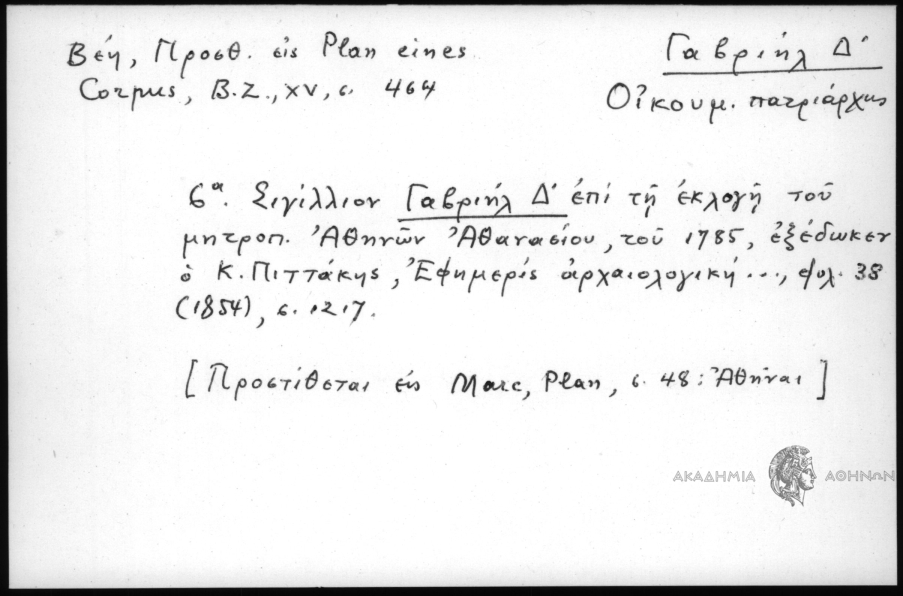 Βέη, Προσθ. εἰς Plan eines
Corpus, B.Z., XV, σ. 464
Γαβριήλ Δ'
Οἰκουμ. πατριάρχης
6α. Σιγίλλιον Γαβριήλ Δ' ἐπί τῇ ἐκλογῇ τοῦ
μητροπ. Ἀθηνῶν Ἀθανασίου, τοῦ 1785, ἐξέδωκεν
ὁ Κ. Πιττάκης, Ἐφημερίς ἀρχαιολογική..., φυλ. 38
(1854), σ. 1217.
[Προστίθεται εἰς Marc, Plan, σ. 48: Ἀθῆναι]
ΑΚΑΔΗΜΙΑ ΑΘΗΝΩΝ